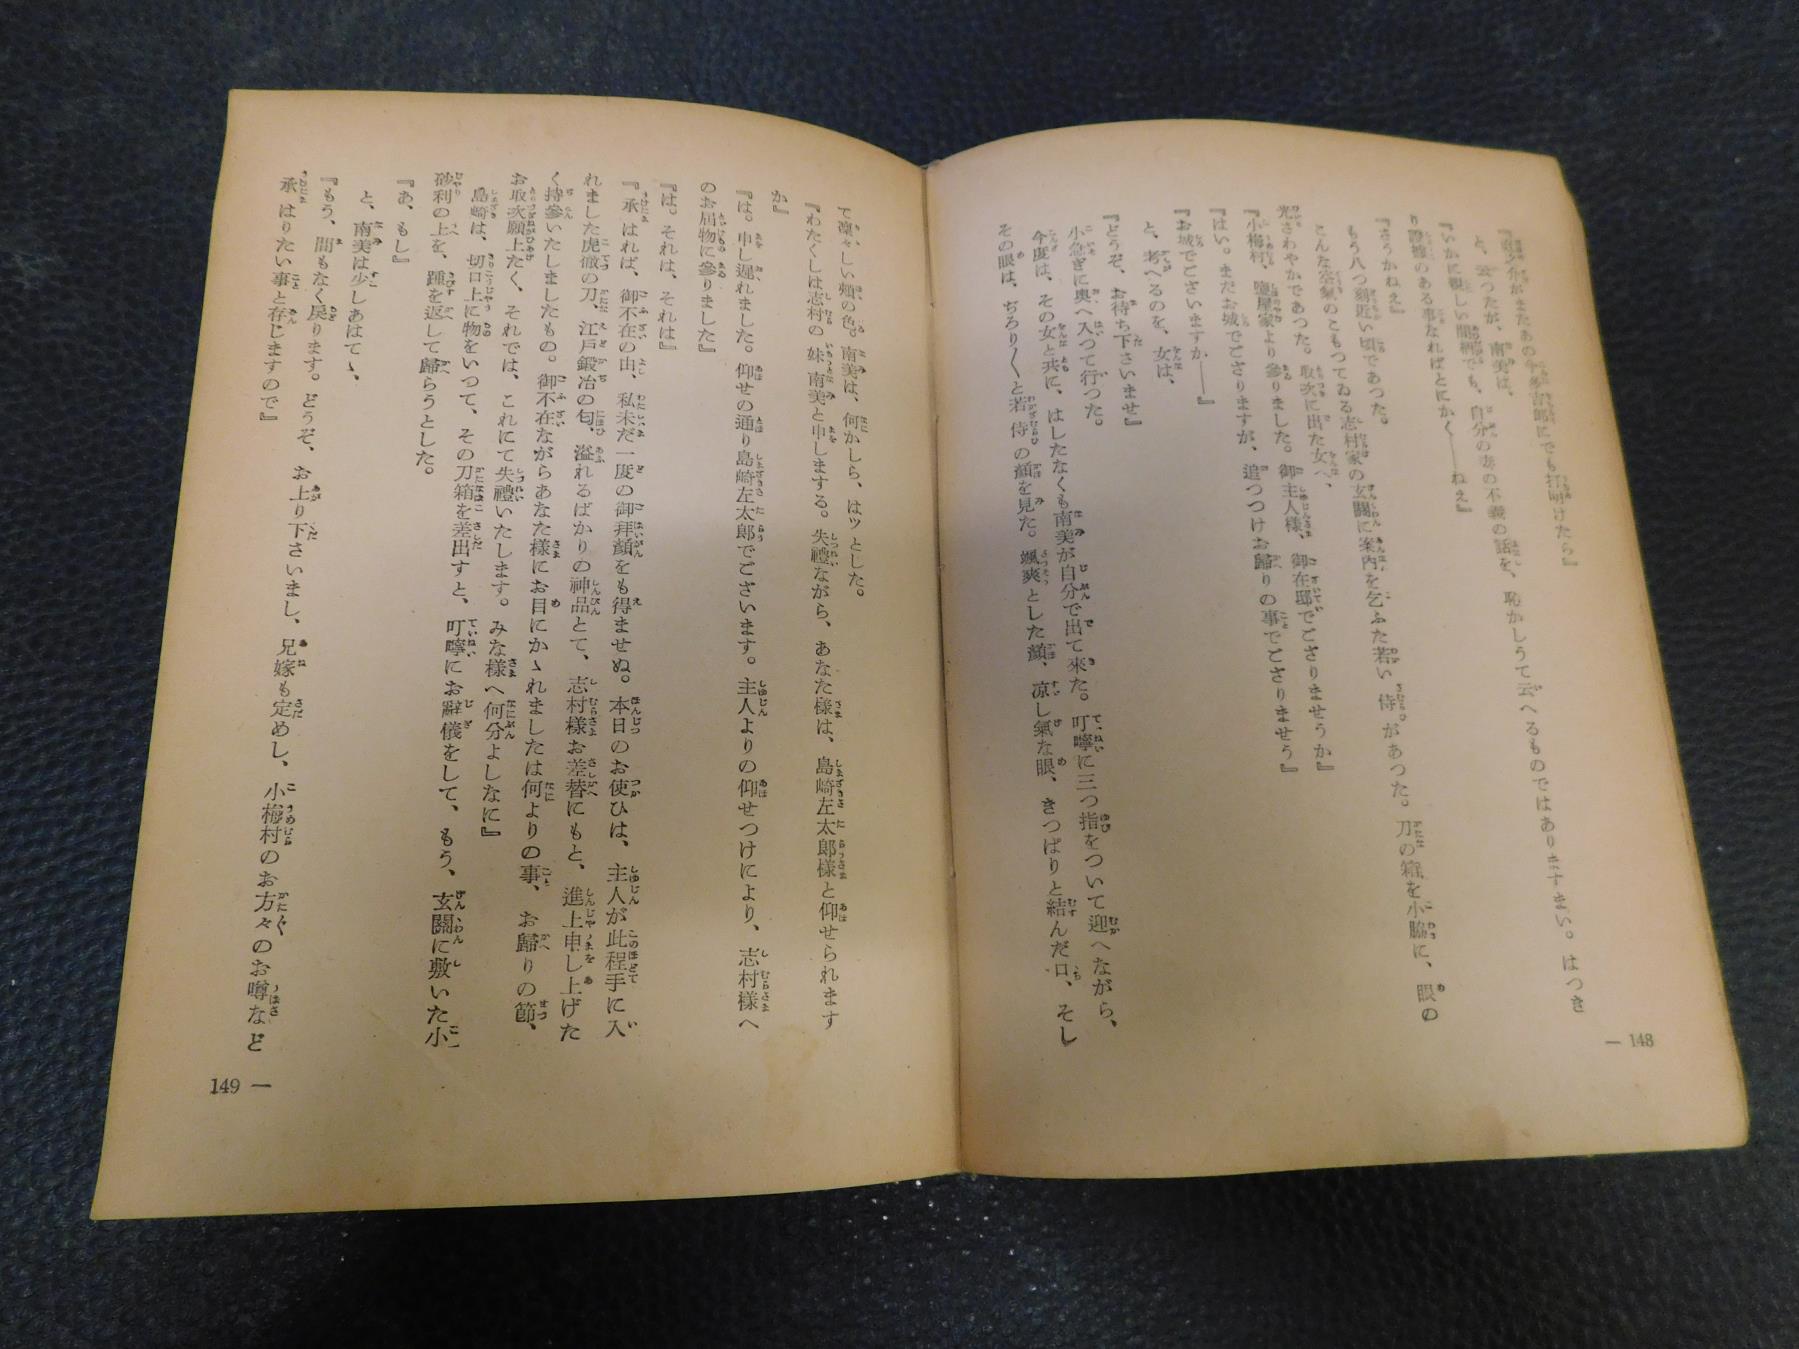 がまたあの今多吉郎にでも打明けたら』
と、云つたが、南美は、
『いかに親しい間柄でも、自分の妻の不義の話を、恥かしうて云へるものではありますまい。はつき
り證據のある事なればとにかく――ねえ』
『さうかねえ』
もう八つ刻近い頃であつた。
こんな空氣のこもつてゐる志村家の玄關に案内を乞ふた若い侍があつた。刀の箱を小脇に、眼の
光さわやかであつた。取次に出た女へ、
『小梅村、鹽屋家より參りました。御主人樣、御在邸でござりませうか』
『はい。まだお城でござりますが、追つつけお歸りの事でござりませう』
『お城でございますか――』
と、考へるのを、女は、
『どうぞ、お待ち下さいませ』
小急ぎに奧へ入つて行つた。
今度は、その女と共に、はしたなくも南美が自分で出て來た。叮嚀に三つ指をついて迎へながら、
その眼は、ぢろり〳〵と若侍の顏を見た。颯爽とした顏、凉し氣な眼、きつぱりと結んだ口、そし
― 148
て凜々しい頰の色。南美は、何かしら、はツとした。
『わたくしは志村の妹南美と申しまする。失禮ながら、あなた樣は、島崎左太郎樣と仰せられます
か』
『は。申し遲れました。仰せの通り島崎左太郎でございます。主人よりの仰せつけにより、志村樣へ
のお屆物に參りました』
『は。それは、それは』
『承はれば、御不在の由、私未だ一度の御拜顏をも得ませぬ。本日のお使ひは、主人が此程手に入
れました虎徹の刀、江戸鍛冶の匂、溢れるばかりの神品とて、志村樣お差替にもと、進上申し上げた
く持參いたしましたもの。御不在ながらあなた樣にお目にかゝれましたは何よりの事、お歸りの節、
お取次願上たく、それでは、これにて失禮いたします。みな樣へ何分よしなに』
島崎は、切口上に物をいつて、その刀箱を差出すと、叮嚀にお辭儀をして、もう、玄關に敷いた小
砂利の上を、踵を返して歸らうとした。
『あ、もし』
と、南美は少しあはてゝ、
『もう、間もなく戾ります。どうぞ、お上り下さいまし、兄嫁も定めし、小梅村のお方々のお噂など
承はりたい事と存じますので』
149 ―